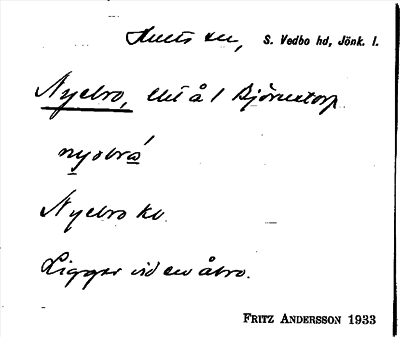 Hults sn, S. Vedbo hd, Jönk. l.
Nyebro, lht å 1 Björnetorp
nyobrá
Nyebro kv.
Ligger vid en åbro.
FRITZ ANDERSSON 1933